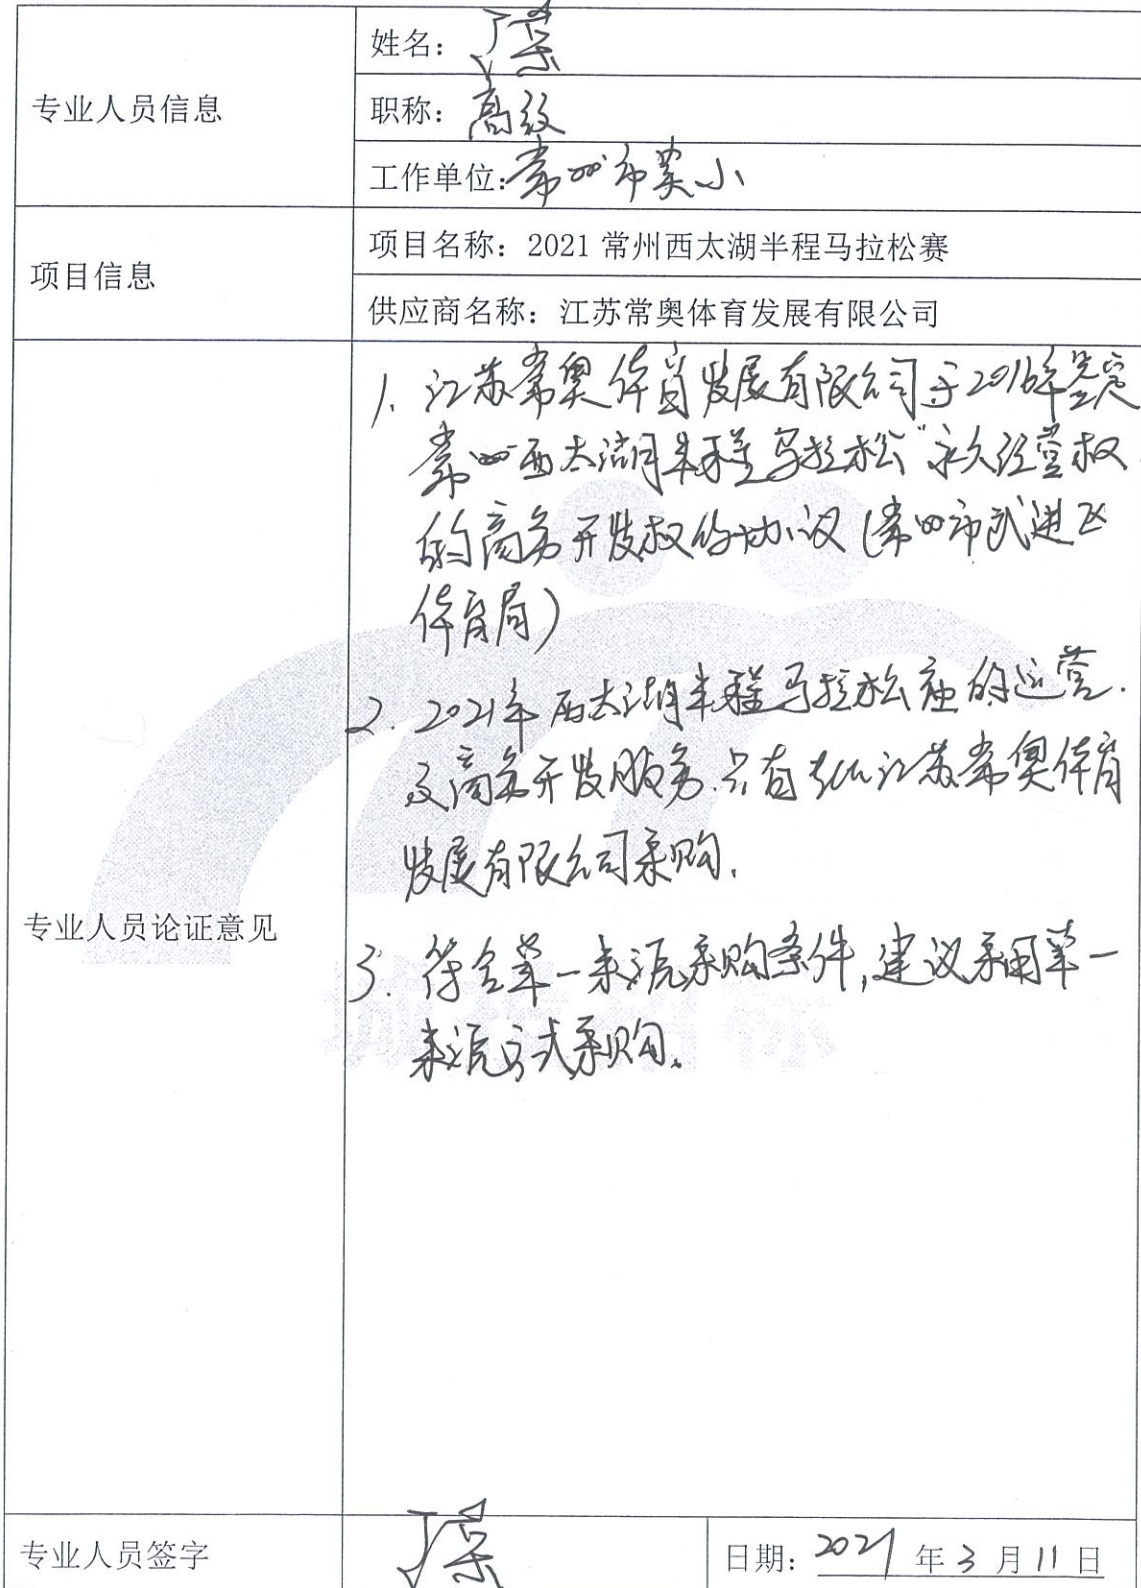 专业人员信息
姓名：
职称：高级
工作单位：常州市奖小
项目信息
项目名称：2021 常州西太湖半程马拉松赛
供应商名称：江苏常奥体育发展有限公司
专业人员论证意见
1. 江苏常奥体育发展有限公司于2016年签定
常州西太湖半程马拉松“永久经营权
的商务开发权的协议（常州市武进区
体育局）
2. 2021年西太湖半程马拉松赛的运营.
及商务开发服务.只有江苏常奥体育
发展有限公司采购.
3. 符合单一来源采购条件,建议采用单一
来源方式采购。
专业人员签字
日期：2021 年 3 月 11 日